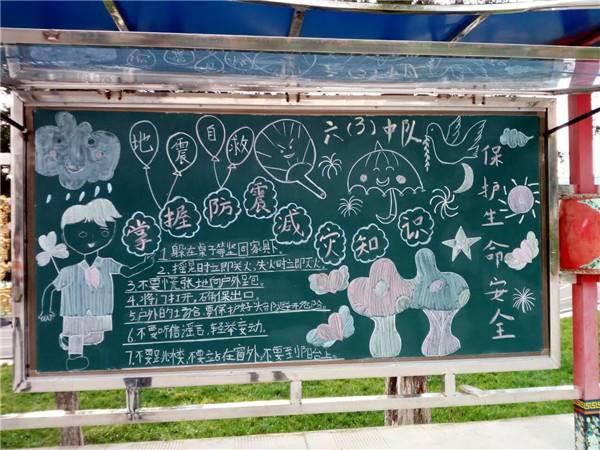 地震自救
六(3)中队
掌握防震减灾知识
保护生命安全
1.躲在桌子等坚固家具下
2.摇晃时立即关火,失火时立即灭火。
3.不要慌张地向户外跑。
4.将门打开,确保出口
5.户外的场合,要保护好头部,避开危险。
6.不要听信谣言,轻举妄动。
7.不要跳楼,不要站在窗外,不要到阳台上。